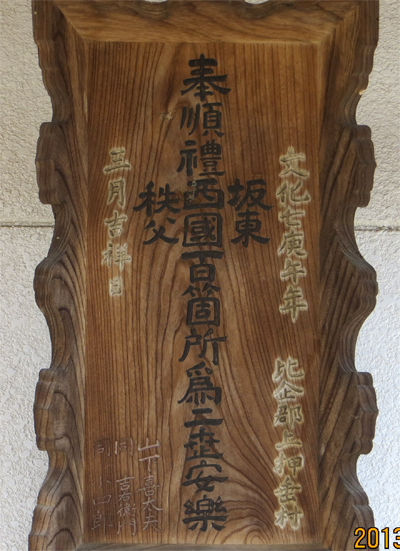 文化七庚午年 比企郡上押垂村
坂東
奉順禮西國百箇所爲二世安樂
秩父
三月吉祥日
山下喜太
同 吉右衛門
小四郎
2013